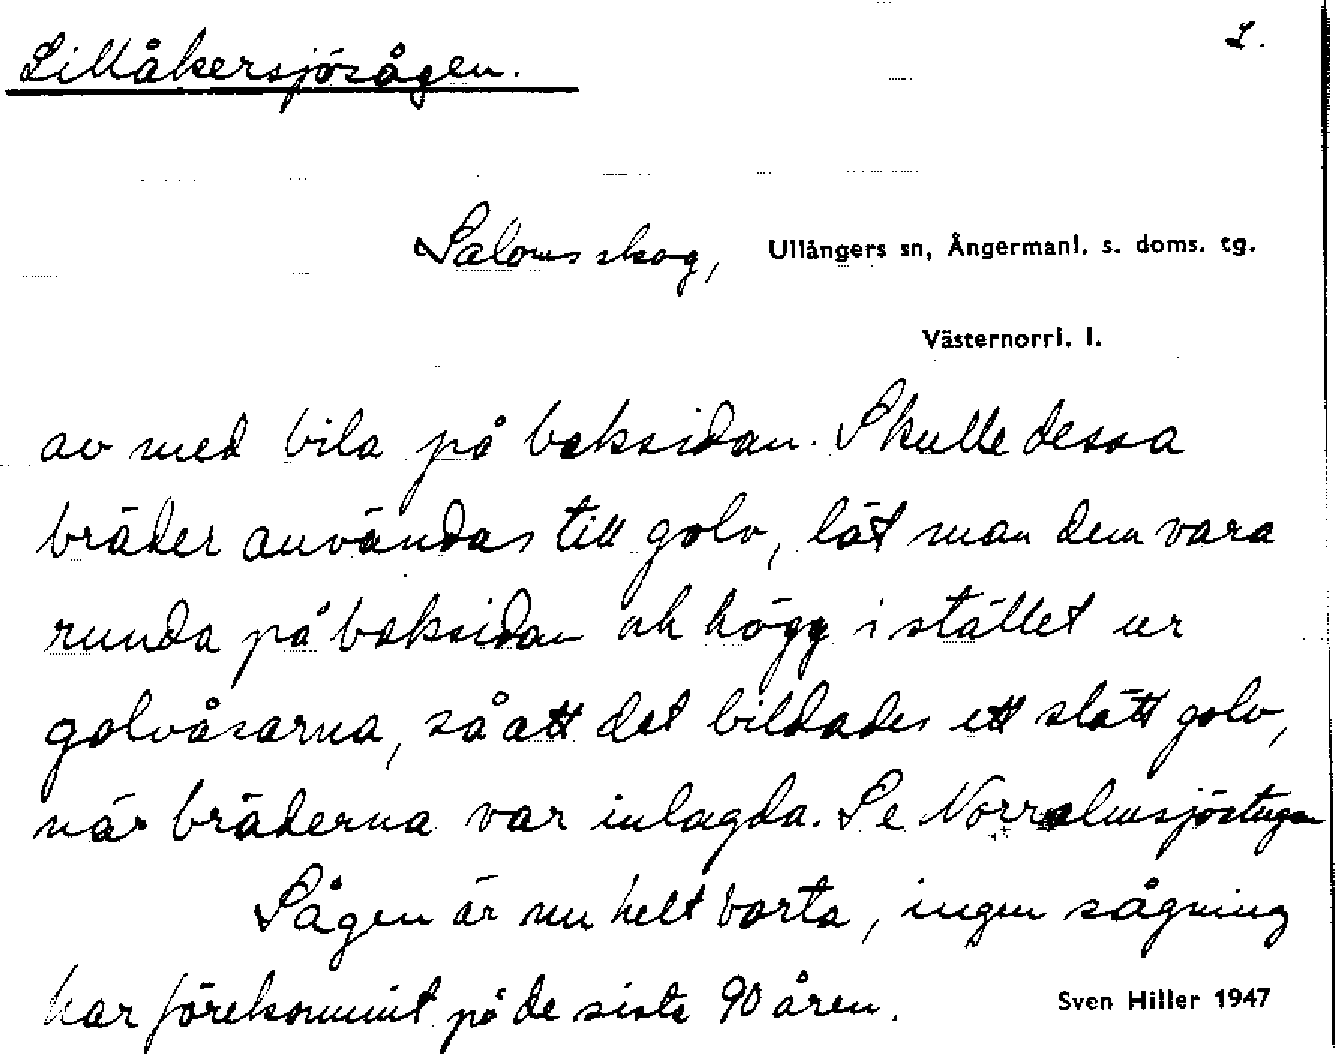 Lillåkersjösågen.
2.
Salomsskog, Ullångers sn, Ångermanl. s. doms. tg.
Västernorrl. l.
av med bila på baksidan. Skulle dessa
bräder användas till golv, lät man dem vara
runda på baksidan och högg i stället ur
golvåsarna, så att det bildades ett slätt golv,
när bräderna var inlagda. Se Norralmsjöstugan
Sågen är nu helt borta, ingen sågning
har förekommit på de sista 90 åren.
Sven Hiller 1947